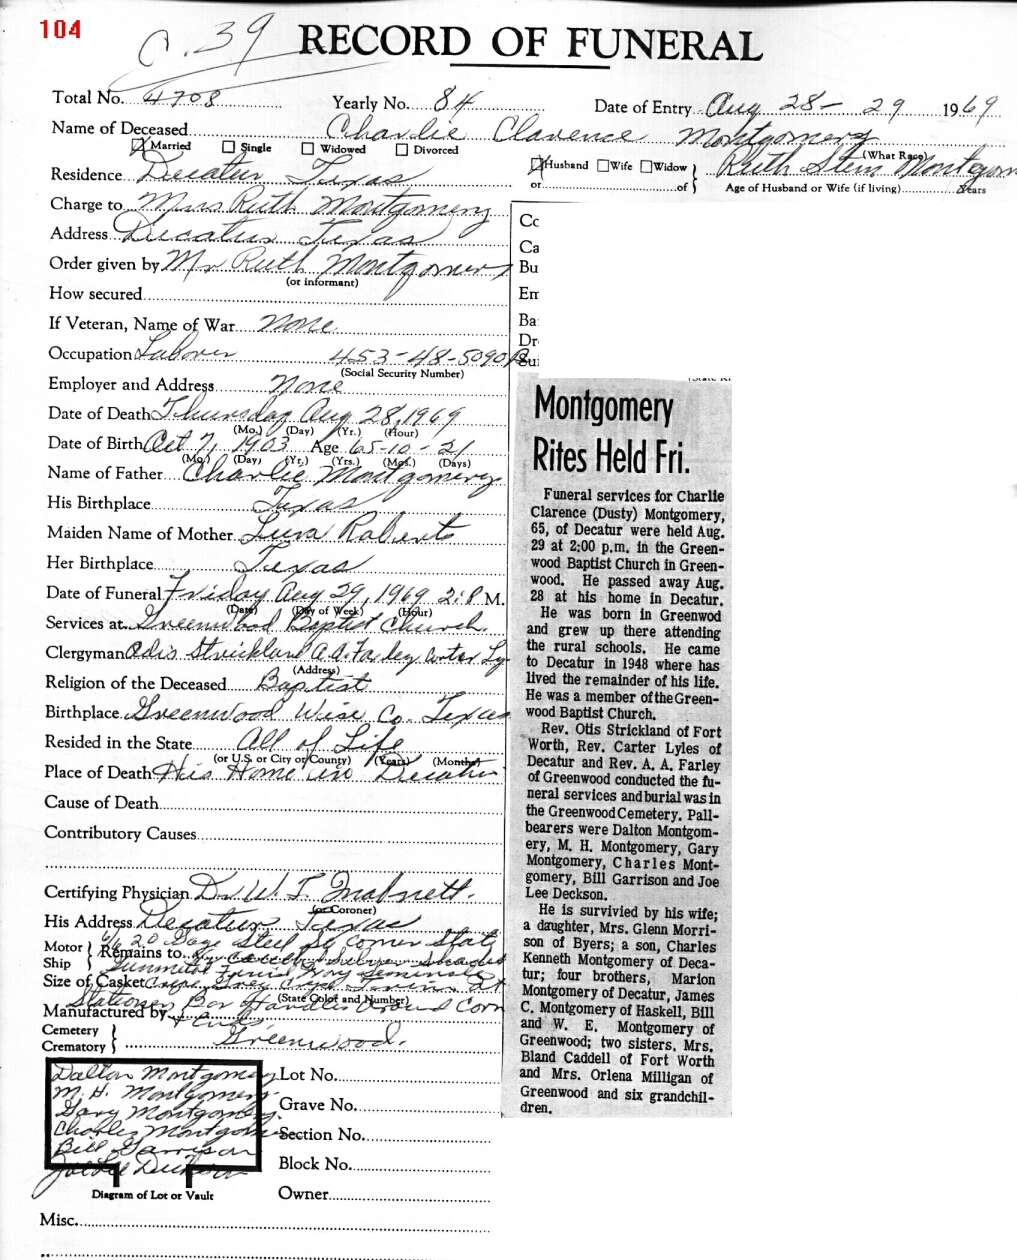 104
C. 39
RECORD OF FUNERAL
Total No. 4708 Yearly No. 84 Date of Entry Aug 28-29 1969
Name of Deceased Charlie Clarence Montgomery
Married Single Widowed Divorced (What Race)
Husband Wife Widow Ruth Stein Montgom
Residence Decatur Texas or of Age of Husband or Wife (if living) Years
Charge to Mrs Ruth Montgomery
Address Decatur Texas
Order given by Mr Ruth Montgomery
(or informant)
How secured
If Veteran, Name of War None
Occupation Laborer 453-48-5090
(Social Security Number)
Employer and Address None
Date of Death Thursday Aug 28, 1969
(Mo.) (Day) (Yr.) (Hour)
Date of Birth Oct 7, 1903 Age 65-10-21
(Mo.) (Day) (Yr.) (Yrs.) (Mos.) (Days)
Name of Father Charlie Montgomery
His Birthplace Texas
Maiden Name of Mother Roberts
Her Birthplace Texas
Date of Funeral Friday Aug 29, 1969 2:P M.
(Date) (Day of Week) (Hour)
Services at Greenwood Baptist Church
Clergyman Odis Strickland A.A. Farley Carter Ly
(Address)
Religion of the Deceased Baptist
Birthplace Greenwood Wise Co. Texas
Resided in the State All of Life
(or U.S. or City or County) (Years) (Months)
Place of Death His Home in Decatur
Cause of Death
Contributory Causes
Certifying Physician Dr W. T.
(or Coroner)
His Address Decatur Texas
6/6 20 Gage Steel Sq Corner
Motor Ship Remains to Silver Shaded
Size of Casket
(State Color and Number)
Stationary Bar Handles Around Corn
Manufactured by + Ends
Cemetery Crematory Greenwood.
Dalton Montgomery
M. H. Montgomery
Gary Montgomery
Charles Montgom
Bill Garrison
Joe Lee
Diagram of Lot or Vault
Lot No.
Grave No.
Section No.
Block No.
Owner
Misc.
Cc
Ca
Bu
Em
Ba
Dr
Montgomery
Rites Held Fri.
Funeral services for Charlie
Clarence (Dusty) Montgomery,
65, of Decatur were held Aug.
29 at 2:00 p.m. in the Green-
wood Baptist Church in Green-
wood. He passed away Aug.
28 at his home in Decatur.
He was born in Greenwod
and grew up there attending
the rural schools. He came
to Decatur in 1948 where has
lived the remainder of his life.
He was a member of the Green-
wood Baptist Church.
Rev. Otis Strickland of Fort
Worth, Rev. Carter Lyles of
Decatur and Rev. A. A. Farley
of Greenwood conducted the fu-
neral services and burial was in
the Greenwood Cemetery. Pall-
bearers were Dalton Montgom-
ery, M. H. Montgomery, Gary
Montgomery, Charles Mont-
gomery, Bill Garrison and Joe
Lee Deckson.
He is survivied by his wife;
a daughter, Mrs. Glenn Morri-
son of Byers; a son, Charles
Kenneth Montgomery of Deca-
tur; four brothers, Marion
Montgomery of Decatur, James
C. Montgomery of Haskell, Bill
and W. E. Montgomery of
Greenwood; two sisters, Mrs.
Bland Caddell of Fort Worth
and Mrs. Orlena Milligan of
Greenwood and six grandchil-
dren.